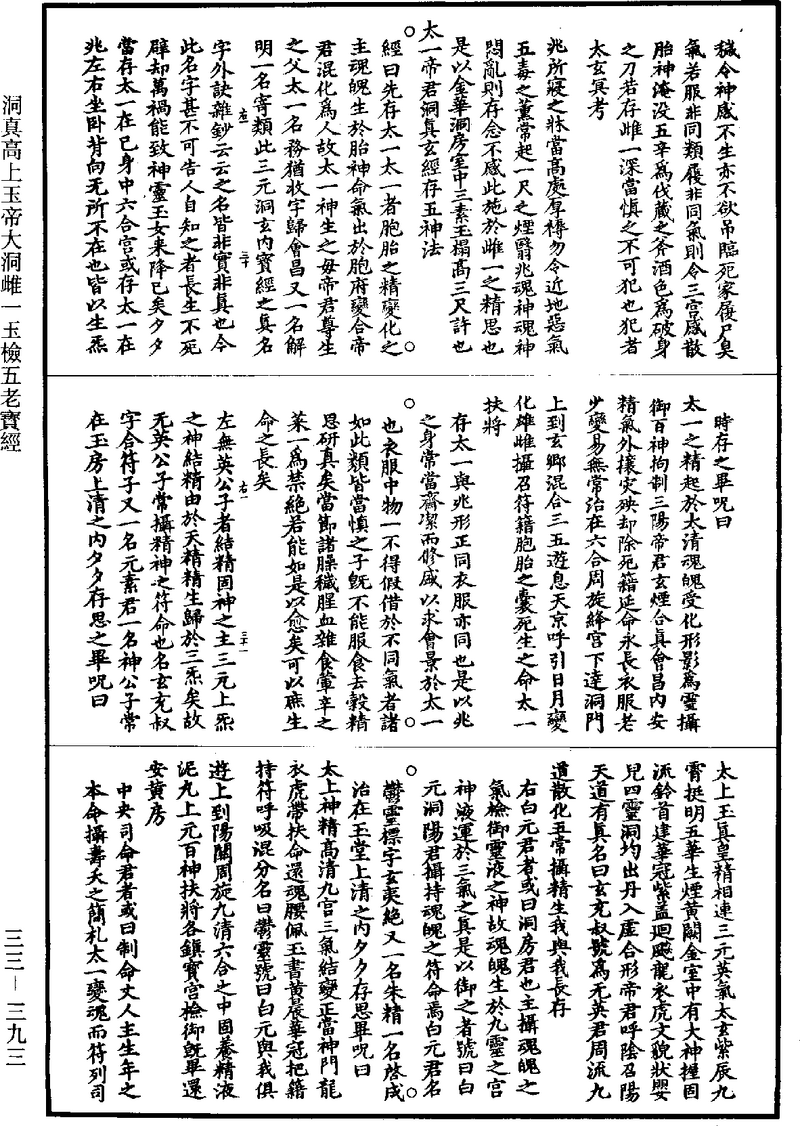 穢令神感不生亦不欲吊臨死家履尸臭
氣若服非同類履非同氣則令三宮感散
胎神淹沒五辛爲伐藏之斧酒色爲破身
之刀若存雌一深當慎之不可犯也犯者
太玄冥考
兆所寢之牀當高處厚樽勿令近地惡氣
五毒之薰常起一尺之煙翳兆魂神魂神
悶亂則存念不感此施於雌一之精思也
是以金華洞房室中三素玉榻高三尺許也
太一帝君洞真玄經存五神法
經曰先存太一太一者胞胎之精變化之
主魂魄生於胎神命氣出於胞府變合帝
君混化爲人故太一神生之母帝君尊生
之父太一名務猶收字歸會昌又一名解
明一名寄類此三元洞玄內寶經之真名
字外訣雜鈔云云之名皆非實非真也今
此名字甚不可告人自知之者長生不死
辟却萬禍能致神靈玉女來降已矣夕夕
當存太一在己身中六合宮或存太一在
兆左右坐臥背向无所不在也皆以生炁
時存之畢呪曰
太一之精起於太清魂魄受化形影爲靈攝
御百神拘制三陽帝君玄煙合真會昌內安
精氣外攘灾殃却除死籍延命永長衣服老
少變易無常治在六合周旋絳宮下達洞門
上到玄鄉混合三五遊息天京呼引日月變
化雄雌攝召符籍胞胎之囊死生之命太一
扶將
存太一與兆形正同衣服亦同也是以兆
之身常當齋潔而修感以求會景於太一
也衣服巾物一不得假借於不同氣者諸
如此類皆當慎之子既不能服食去穀精
思研真矣當節諸臊穢腥血雜食葷辛之
菜一爲禁絕若能如是以愈矣可以庶生
命之長矣
左無英公子者結精固神之主三元上炁
之神結精由於天精精生歸於三炁矣故
无英公子常攝精神之符命也名玄充叔
字合符子又一名元素君一名神公子常
在玉房上清之內夕夕存思之畢呪曰
太上玉真皇精相連三元英氣太玄紫辰九
霄挺明五華生煙黃闕金室中有大神握固
流鈴首建華冠紫蓋迴飈龍衣虎文貌狀嬰
兒四靈洞均出丹入虛合形帝君呼陰召陽
天道有真名曰玄充叔號爲无英君周流九
道散化五常攝精生我與我長存
右白元君者或曰洞房君也主攝魂魄之
氣檢御靈液之神故魂魄生於九靈之宮
神液運於三氣之真是以御之者號曰白
元洞陽君攝持魂魄之符命焉白元君名
鬱靈標字玄夷絕又一名朱精一名啓成
治在玉堂上清之內夕夕存思畢呪曰
太上神精高清九宮三氣結變正當神門龍
衣虎帶扶命還魂腰佩玉書黃晨華冠把籍
持符呼吸混分名曰鬱靈號曰白元與我俱
遊上到陽關周旋九清六合之中固養精液
泥九上元百神扶將各鎮寶宮檢御既畢還
安黃房
中央司命君者或曰制命丈人主生年之
本命攝壽夭之簡札太一變魂而符列司
左
三十
右一
三十一
洞真高上玉帝大洞雌一玉檢五老寶經
三三—三九三